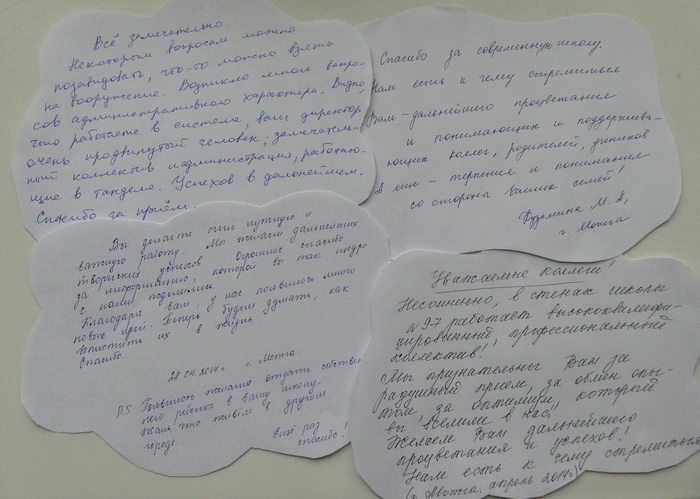 Всё замечательно
Некоторым вопросам можно
позавидовать, что-то можно взять
на вооружение. Возникло много вопро-
сов административного характера. Видно
что работаете в системе, ваш директор
очень продвинутый человек, замечатель-
ный коллектив и администрация, работаю-
щие в тандеме. Успехов в дальнейшем.
Спасибо за приём.
Спасибо за современную школу.
Нам есть к чему стремиться
Вам - дальнейшего процветания
и понимающих и поддержива-
ющих коллег, родителей, учеников
А еще - терпения и понимания
со стороны ваших семей!
Кузьмина М. А,
г. Можга
Вы делаете очень нужную и
важную работу. Мы желаем дальнейших
творческих успехов. Огромное спасибо
за информацию, которой вы так щедро
с нами поделились.
Благодаря вам у нас появилось много
новых идей. Теперь будем думать, как
воплотить их в жизнь.
Спасибо.
28.04.2014г. г. Можга.
P.S Появилось желание отдать собствен-
ного ребенка в вашу школу.
Жаль что живём в другом
городе.
ещё раз
спасибо!
Уважаемые коллеги!
Несомненно, в стенах школы
№97 работает высококвалифи-
цированный, профессиональный
коллектив!
Мы признательны Вам за
радушный прием, за обмен опы-
том, за оптимизм, который
вы вселили в нас,
Желаем Вам дальнейшего
процветания и успехов!
Нам есть к чему стремиться
(г. Можга, апрель 2014г)